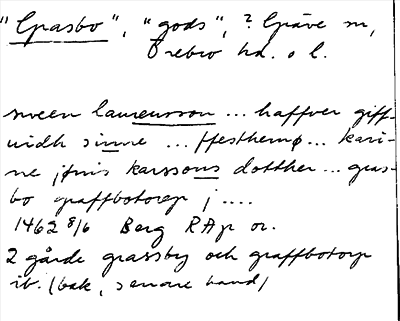 "Grasbo", "gods", ? Gräve sn,
Örebro hd. o l.
sween laurensson ... haffver giff-
uidh sinne ... ffesthemø... kari-
ne jønis karssons dotther ... gras-
bo graffbotorp j ....
1462 8/6 Berg RAp or.
2 gårde grassby och graffbotorp
ib. (bak, senare hand)